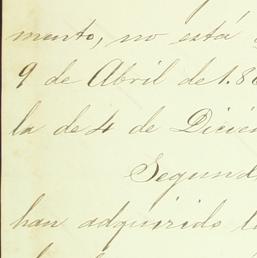 mento, no está
9 de Abril de 1.8
la de 4 de Diciem
Segund
han adquirido l